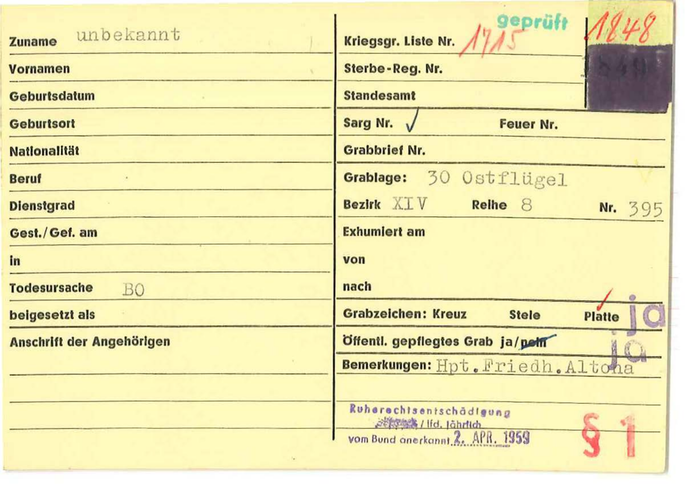 geprüft
Zuname unbekannt
Vornamen
Geburtsdatum
Geburtsort
Nationalität
Beruf
Dienstgrad
Gest./Gef. am
in
Todesursache BO
beigesetzt als
Anschrift der Angehörigen
Kriegsgr. Liste Nr. 1715 1848
Sterbe-Reg. Nr.
Standesamt
Sarg Nr. ✓ Feuer Nr.
Grabbrief Nr.
Grablage: 30 Ostflügel
Bezirk XIV Reihe 8 Nr. 395
Exhumiert am
von
nach
Grabzeichen: Kreuz Stele Platte ja
Öffentl. gepflegtes Grab ja/nein ja
Bemerkungen: Hpt.Friedh.Altona
Ruherechtsentschädigung
/ lfd. jährlich
vom Bund anerkannt 2. APR. 1959
§ 1